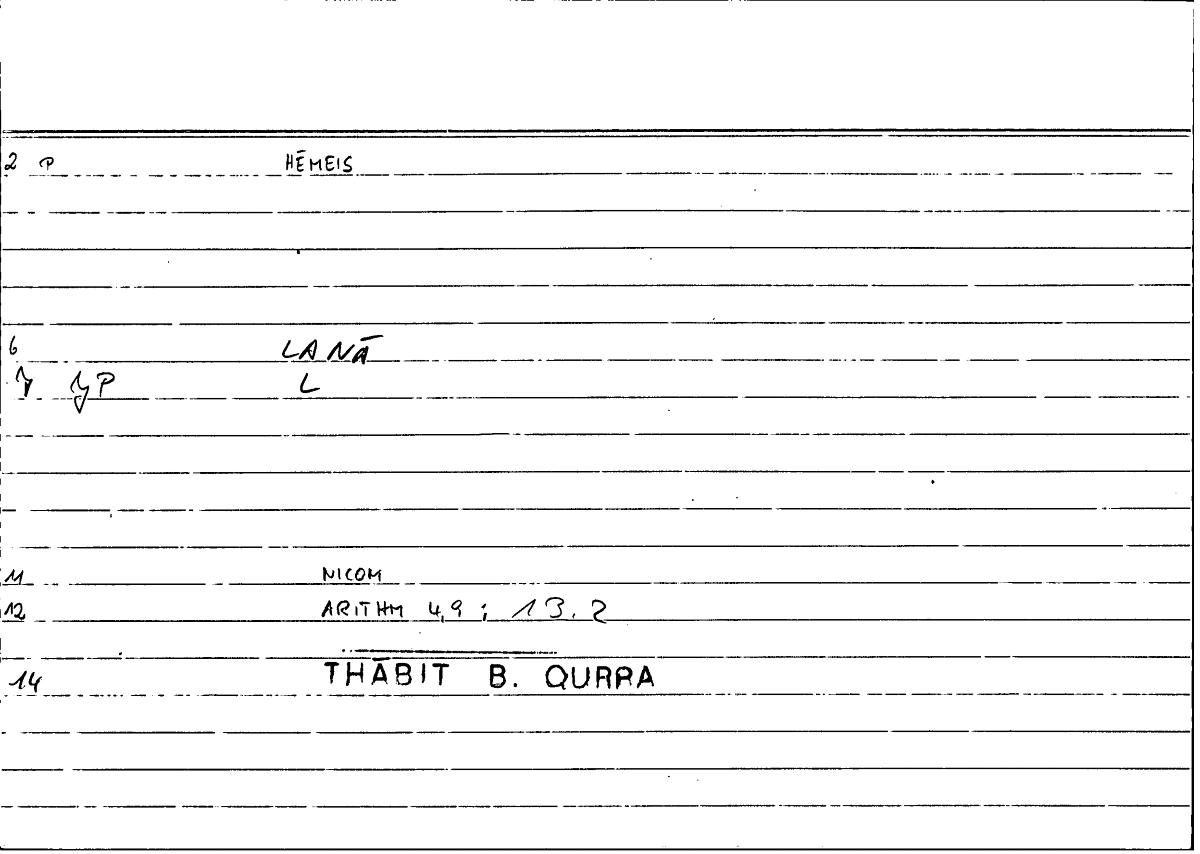 2 P HĒMEIS
6 LANĀ
7 P L
11 NICOM
12 ARITHM 4,9 ; 13.2
14 THĀBIT B. QURRA